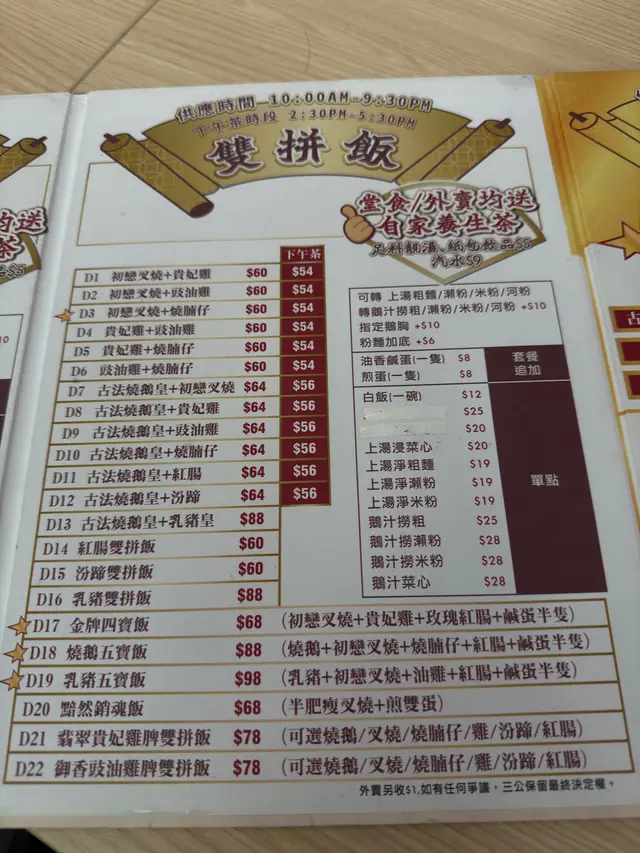 供應時間 10:00AM-9:30PM
下午茶時段 2:30PM-5:30PM
雙拼飯
堂食/外賣均送
自家養生茶
足料靚湯、紙包飲品$5
汽水$9
均送
茶
品$5
下午茶
D1 初戀叉燒+貴妃雞 $60 $54
D2 初戀叉燒+豉油雞 $60 $54
D3 初戀叉燒+燒腩仔 $60 $54
D4 貴妃雞+豉油雞 $60 $54
D5 貴妃雞+燒腩仔 $60 $54
D6 豉油雞+燒腩仔 $60 $54
D7 古法燒鵝皇+初戀叉燒 $64 $56
D8 古法燒鵝皇+貴妃雞 $64 $56
D9 古法燒鵝皇+豉油雞 $64 $56
D10 古法燒鵝皇+燒腩仔 $64 $56
D11 古法燒鵝皇+紅腸 $64 $56
D12 古法燒鵝皇+汾蹄 $64 $56
D13 古法燒鵝皇+乳豬皇 $88
D14 紅腸雙拼飯 $60
D15 汾蹄雙拼飯 $60
D16 乳豬雙拼飯 $88
D17 金牌四寶飯 $68 (初戀叉燒+貴妃雞+玫瑰紅腸+鹹蛋半隻)
D18 燒鵝五寶飯 $88 (燒鵝+初戀叉燒+燒腩仔+紅腸+鹹蛋半隻)
D19 乳豬五寶飯 $98 (乳豬+初戀叉燒+油雞+紅腸+鹹蛋半隻)
D20 黯然銷魂飯 $68 (半肥瘦叉燒+煎雙蛋)
D21 翡翠貴妃雞髀雙拼飯 $78 (可選燒鵝/叉燒/燒腩仔/雞/汾蹄/紅腸)
D22 御香豉油雞髀雙拼飯 $78 (可選燒鵝/叉燒/燒腩仔/雞/汾蹄/紅腸)
可轉 上湯粗麵/瀨粉/米粉/河粉
轉鵝汁撈粗/瀨粉/米粉/河粉 +$10
指定鵝胸 +$10
粉麵加底 +$6
油香鹹蛋(一隻) $8
煎蛋(一隻) $8
套餐
追加
白飯(一碗) $12
$25
$20
上湯浸菜心 $20
上湯淨粗麵 $19
上湯淨瀨粉 $19
上湯淨米粉 $19
鵝汁撈粗 $25
鵝汁撈瀨粉 $28
鵝汁撈米粉 $28
鵝汁菜心 $28
單點
外賣另收$1,如有任何爭議，三公保留最終決定權。
古